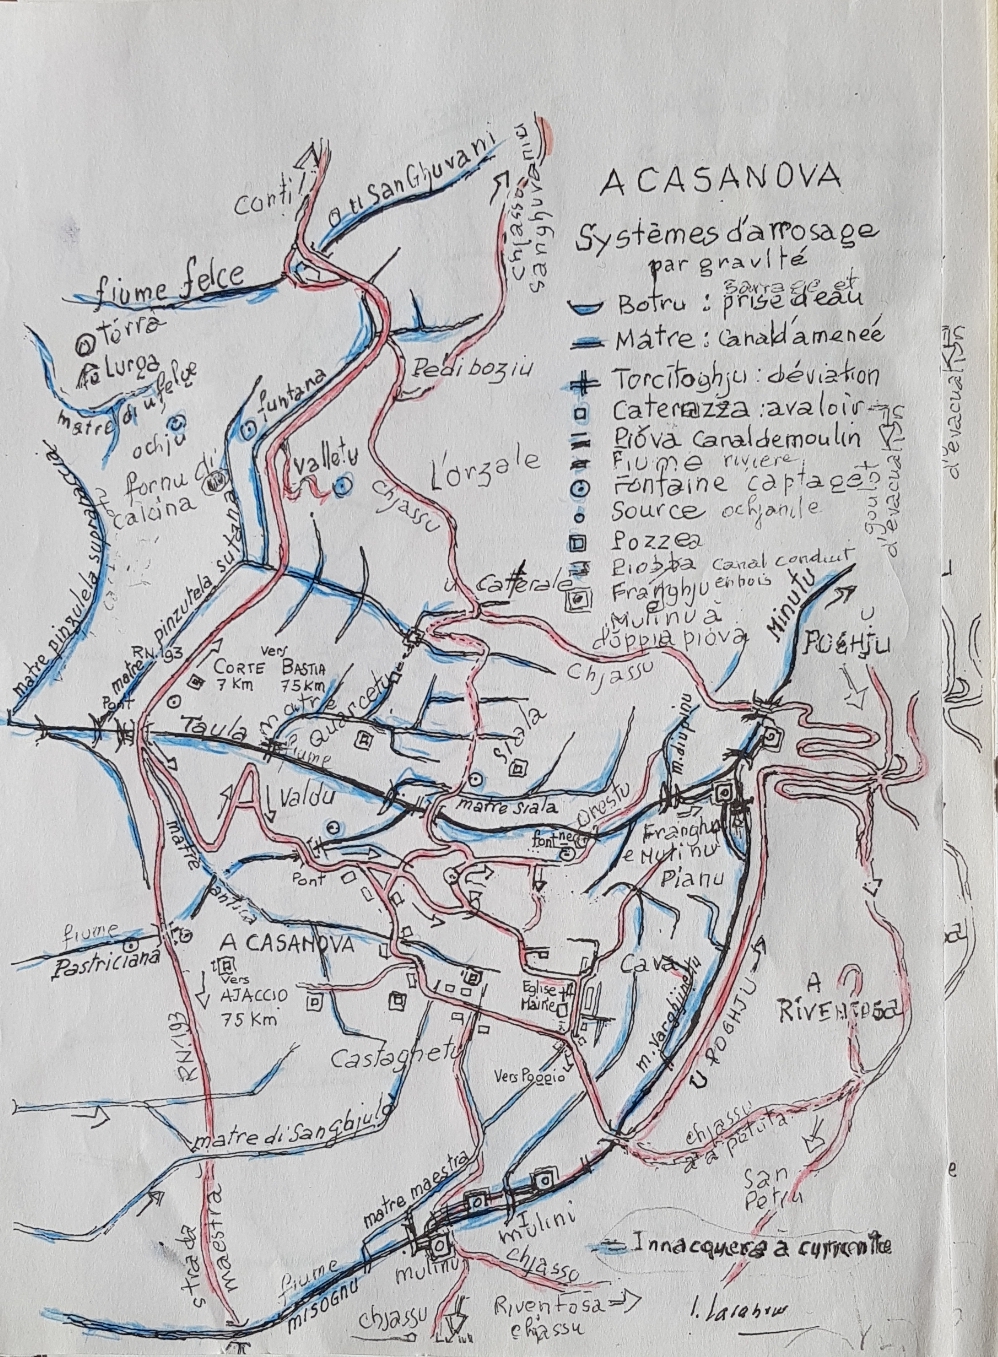 A CASANOVA
Systèmes d'arrosage
par gravité
Botru : barrage et
prise d'eau
Matre : canal d'amenée
Torcitoghju : déviation
Caterazza : avaloir
goulot
d'évacuation
Piòva Canal de moulin
Fiume rivière
Fontaine captage
Source ochjanile
Pozzea
canal conduit
en bois
Franghju
Mulinu à
dóppia pióva
Conti
u San Ghuvani
chjassu
fiume felce
tórra
Lurga
matre di u felge
ochju
fornu di
calcina
funtana
Pedi boziu
L'orzale
Valletu
chjassu
u Catterale
chjassu
Minutu
u
POGHJU
matre pinzutela
matre pinzutela sutana
RN.193
vers
CORTE BASTIA
7 Km 75 Km
Pont
Taula
matre
Quarcetu
fiume
Siala
Valdu
matre siala
Onostu
Franghju
e Mulinu
Pianu
Pont
matre
fiume
Pastriciana
A CASANOVA
vers
AJACCIO
75 Km
Eglise
Mairie
Cava
U POGHJU
A
RIVENTOSA
Castaghetu
Vers Poggio
RN.193
matre di Sanghjulo
matre maestra
chjassu
San
Petru
strada
maestra
fiume
misognu
mulini
mulinu
chjassu
Innacquera à currente
chjassu
Riventosa
chjassu